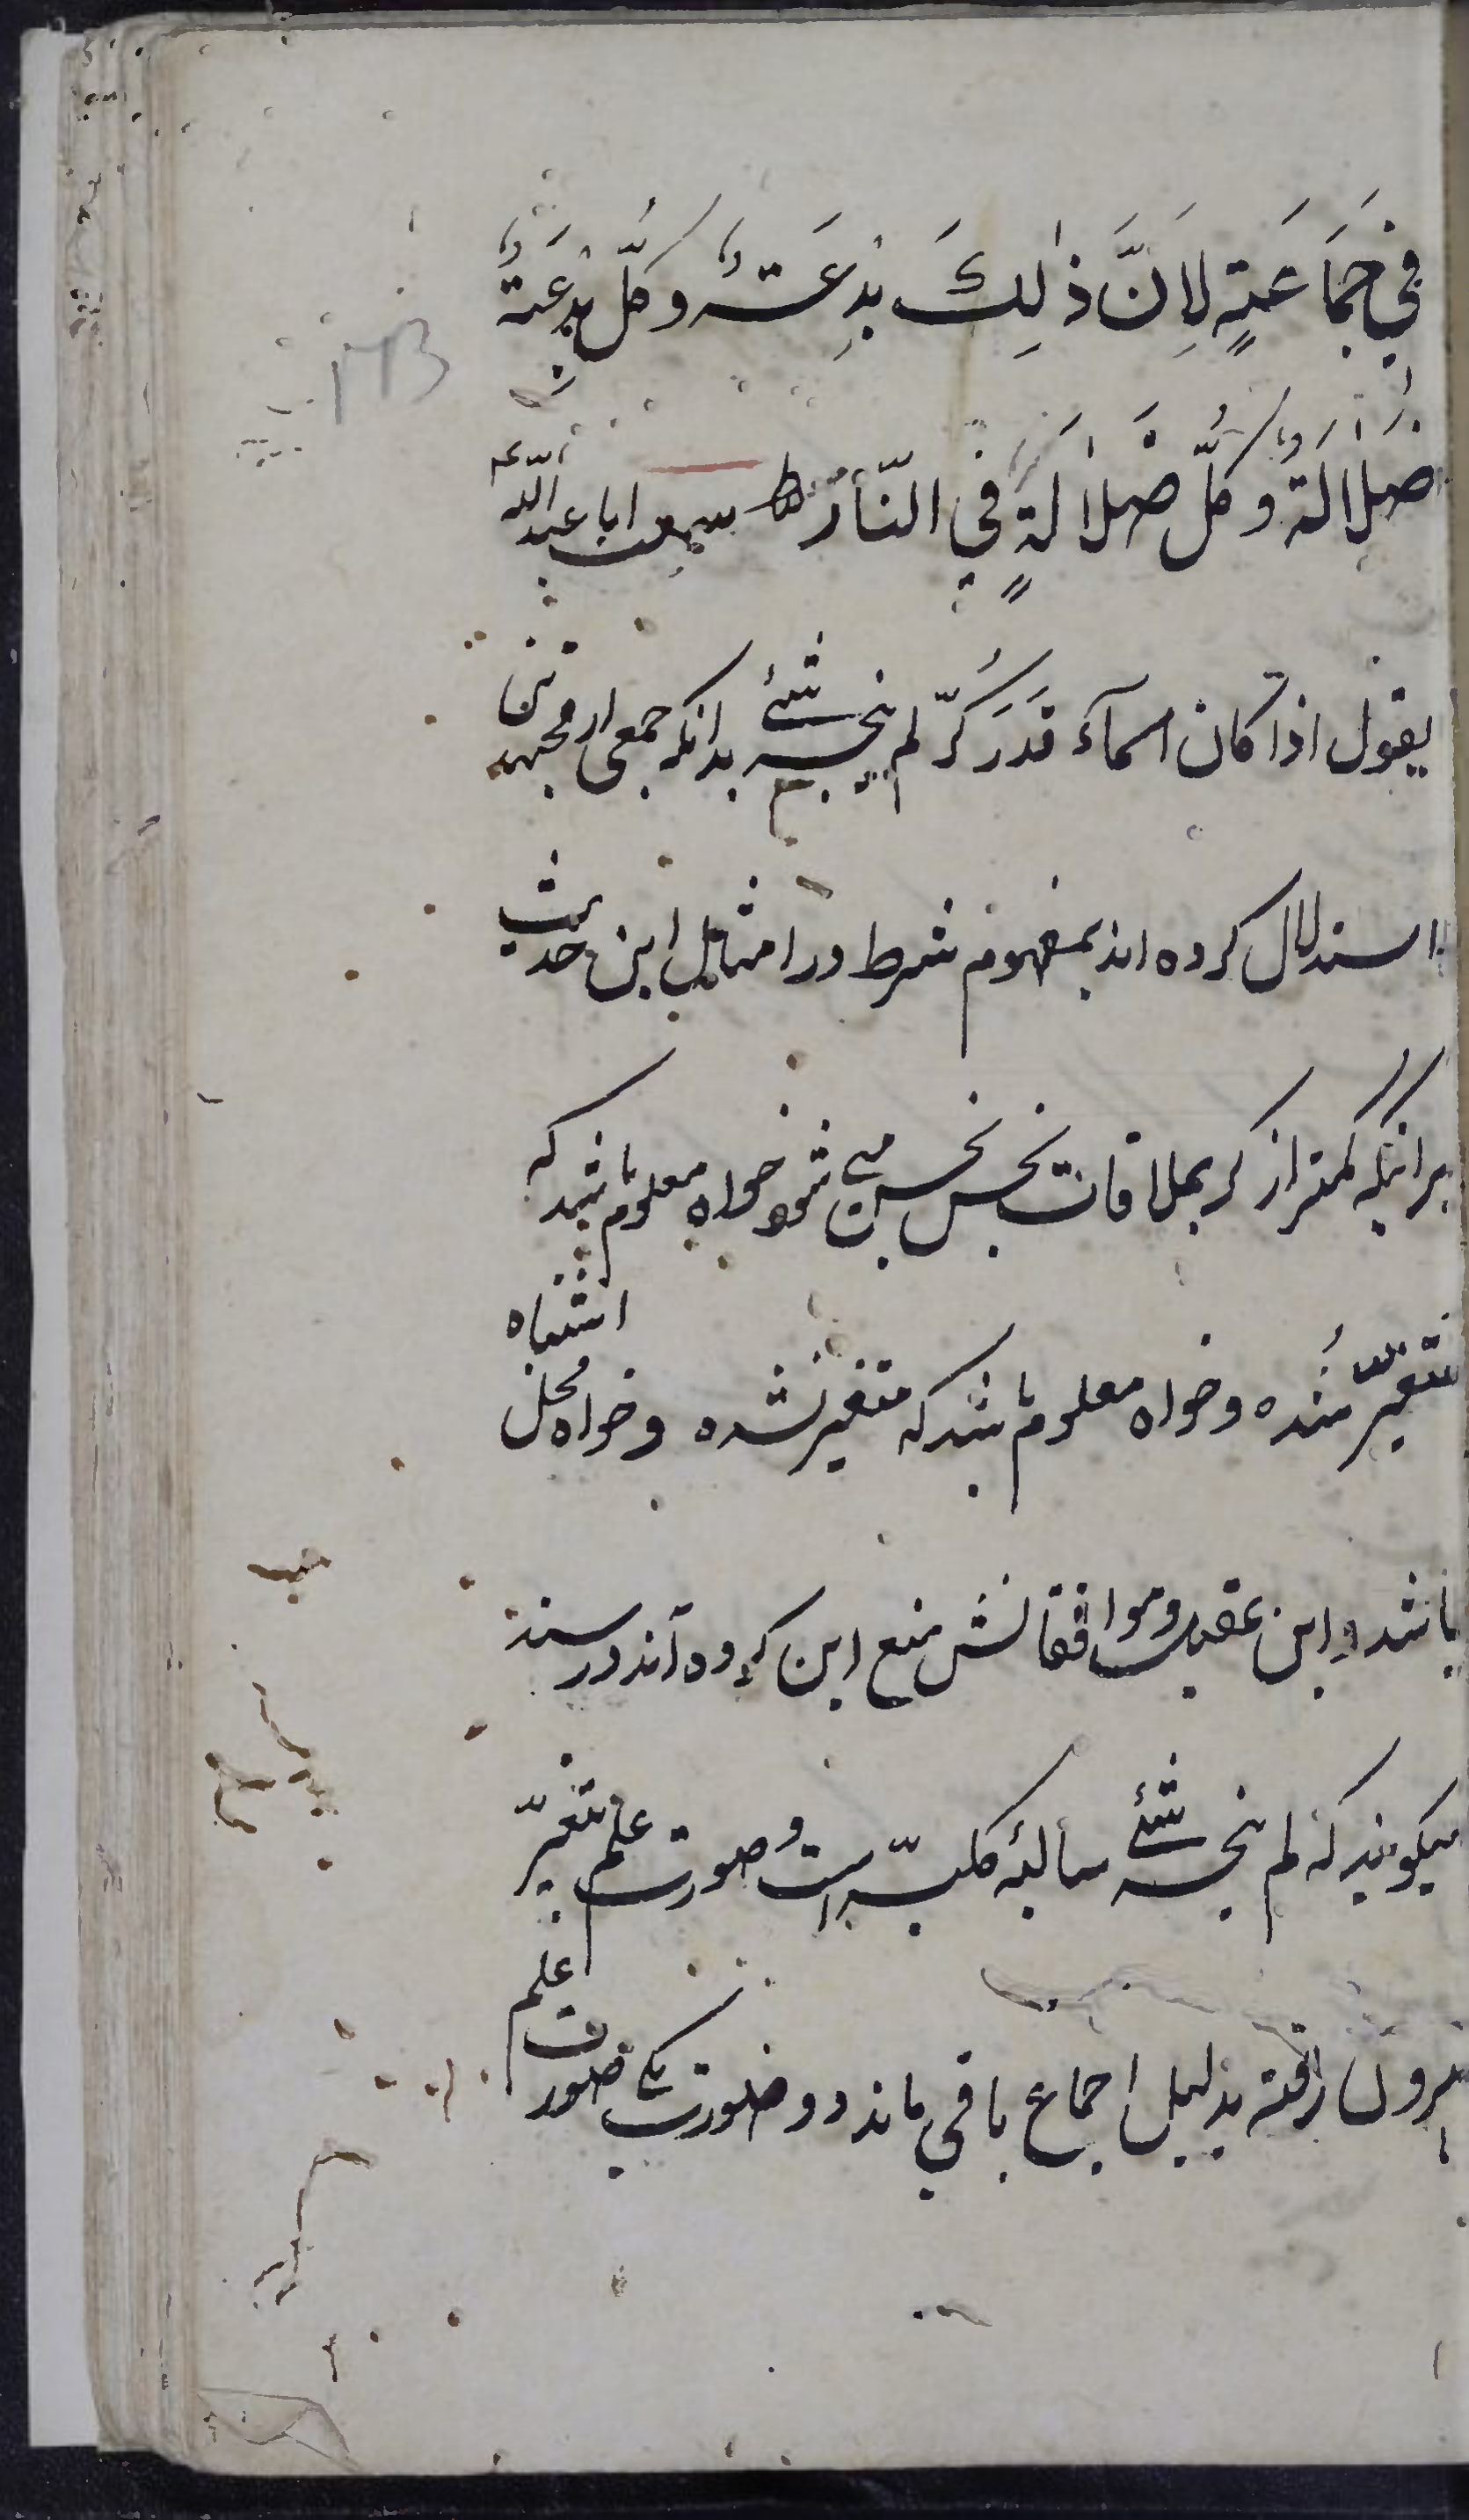 في جَمَاعَةٍ لِاَنَّ ذٰلِكَ بِدْعَتٌ و كلُّ بِدْعَةٍ
ضَلٰالَةٌ و كلُّ ضَلاٰلَةٍ في النّار سمعت ابا عبد اللّه ع
يقول اذا كان المآء قَدَرَ كُرّ لم ينجسه شئ بدانكه جمعى از مجتهدين
استدلال كرده اند بمفهوم شرط در امثال اين حديث
بر اينكه كمتر از كر بملاقات نجس نجس مي شود خواه معلوم باشد كه
متغيّر شُده و خواه معلوم باشد كه متغير نشده و خواه محل اشتباه
باشد و ابن عقيل و موافقانش منع اين كرده اند در سند
ميگويند كه لم ينجسه شئ سالبهٔ كليّه است و صورت علم بتغيّر
بيرون رفته بدليل اجماع باقي ماند دو صورت يكي صورت علم